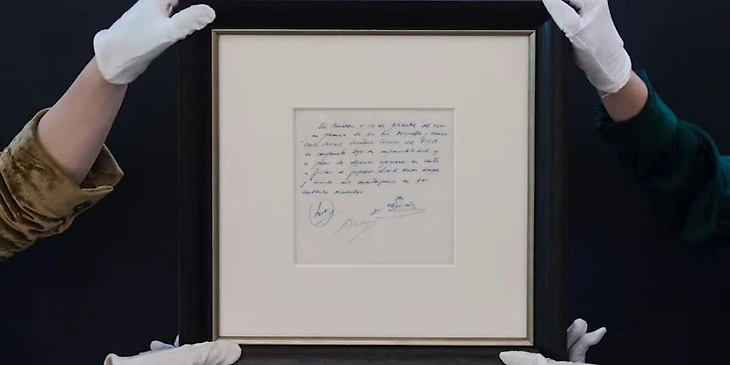 En Barcelona a 14 de Diciembre del 2000
y en presencia de los Srs Minguella y Horacio
Carles Rexach Director Técnico del F.C.B
se compromete bajo su responsabilidad y
a pesar de algunas opiniones en contra
a fichar al jugador Lionel Messi siempre
y cuando nos mantengamos en las
cantidades acordadas